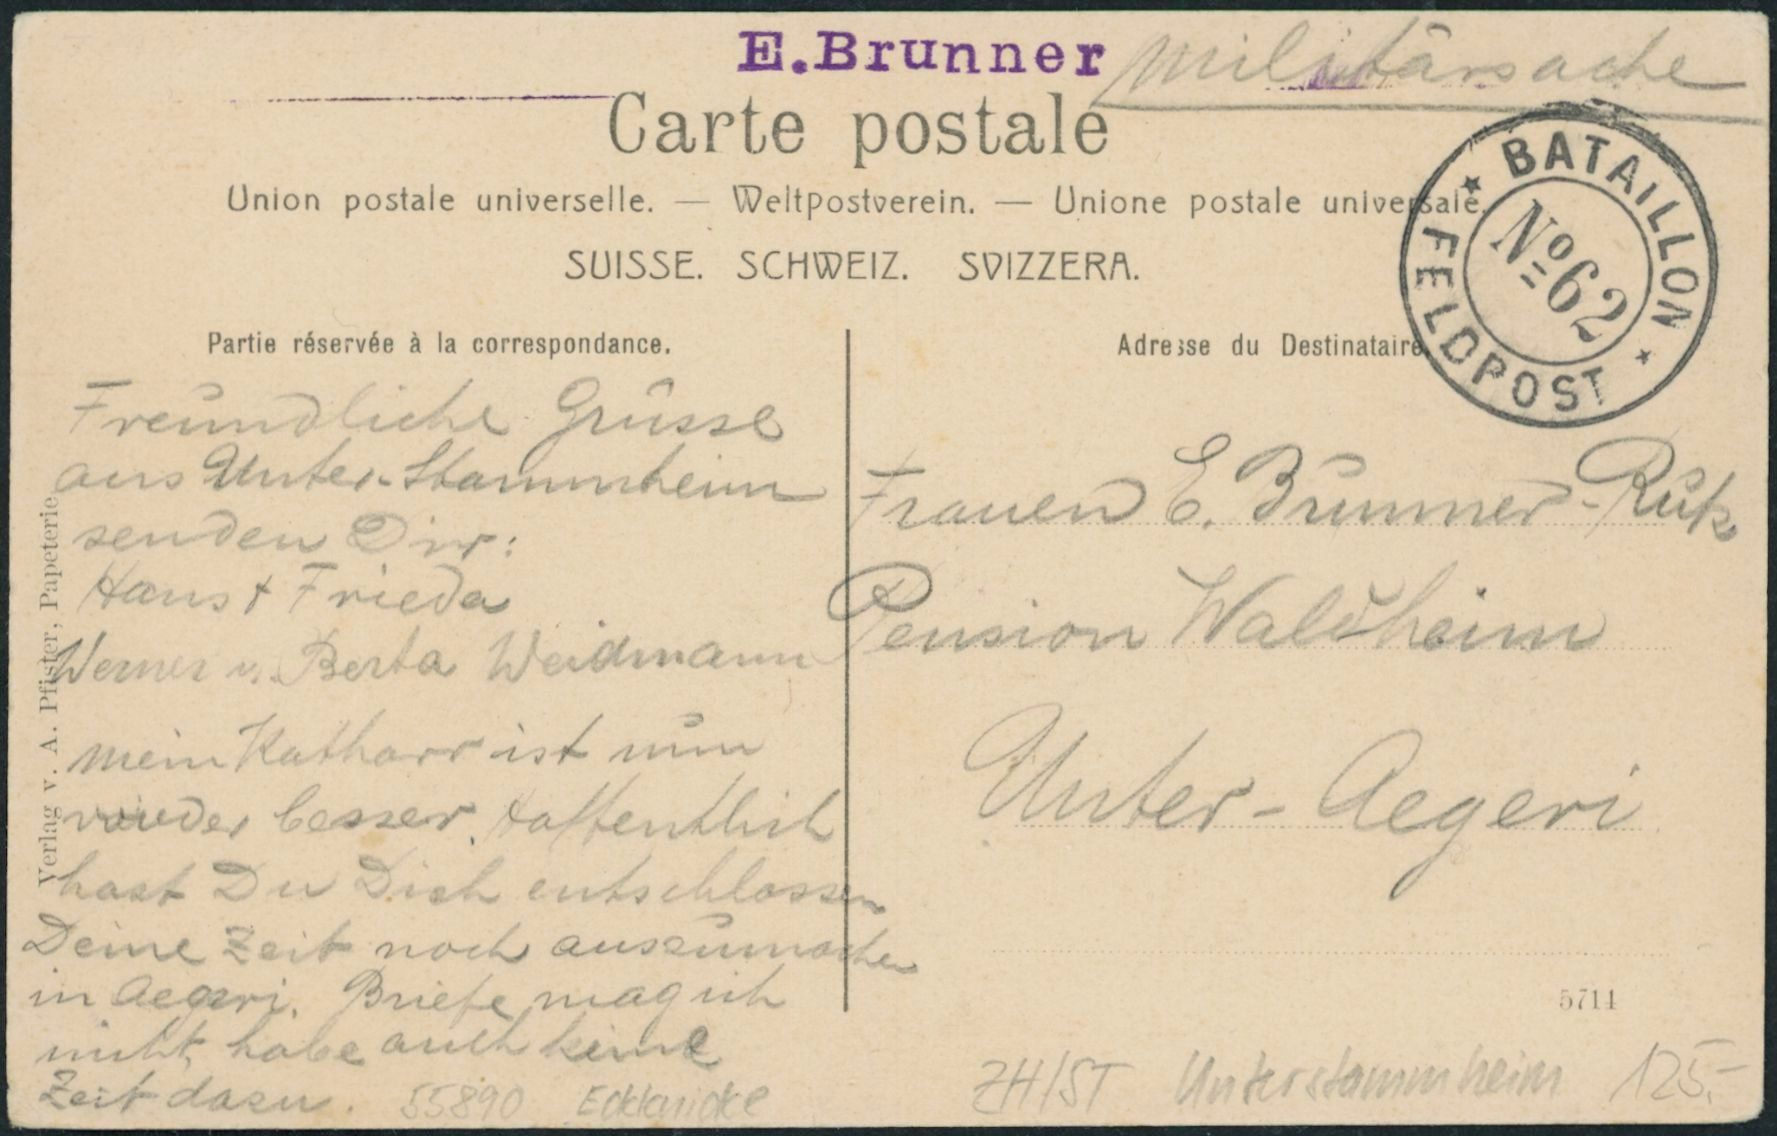 E. Brunner
Militärsache
Carte postale
Union postale universelle. — Weltpostverein. — Unione postale universale.
SUISSE. SCHWEIZ. SVIZZERA.
BATAILLON
No 62
FELDPOST
Partie réservée à la correspondance.
Freundliche Grüsse
aus Unter-Stammheim
senden Dir:
Hans & Frieda
Werner u. Berta Weidmann
Mein Katharr ist nun
wieder besser. Hoffentlich
hast Du Dich entschlossen
Deine Zeit noch auszumachen
in Aegeri. Briefe mag ich
nicht, habe auch keine
Zeit dazu.
Adresse du Destinataire
Frauen E. Brunner-
Pension Waldheim
Unter-Aegeri
Verlag v. A. Pfister, Papeterie
5714
55890 Eckknicke
ZH/ST Unterstammheim 125.-